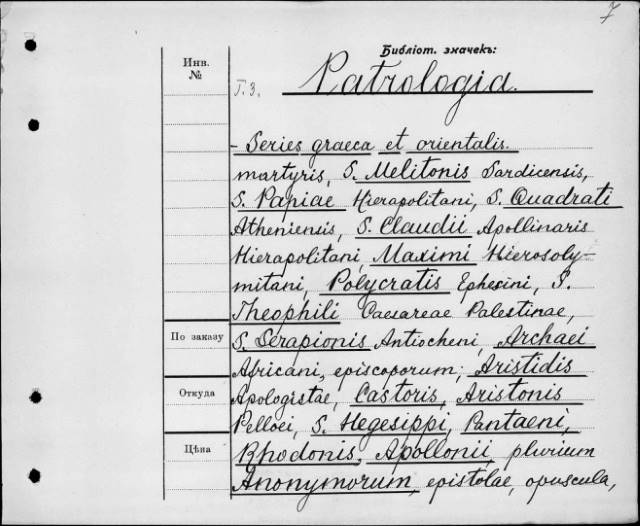 7
Библіот. значекъ:
Инв.
№
Т.3.
Patrologia.
- Series graeca et orientalis.
martyris, S. Melitonis Sardicensis,
S. Papiae Hierapolitani, S. Quadrati
Atheniensis, S. Claudii Apollinaris
Hierapolitani, Maximi Hierosoly-
mitani, Polycratis Ephesini, S.
Theophili Caesareae Palestinae,
По заказу
S. Serapionis Antiocheni, Archaei
Africani, episcoporum; Aristidis
Откуда
Apologistae, Castoris, Aristonis
Pelloei, S. Hegesippi, Pantaeni,
Цѣна
Rhodonis, Apollonii, plurium
Anonymorum, epistolae, opuscula,